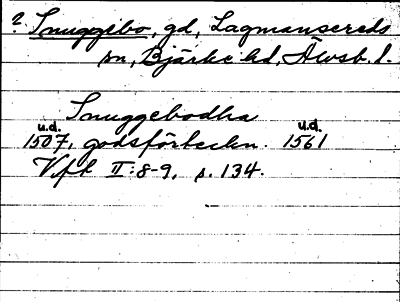 ? Snuggebo, gd, Lagmansereds
sn, Bjärke hd, Älvsb. l.
Snuggebodha
u.d. u.d.
1507, godsförteckn. 1561
Vft II:8-9, s. 134.